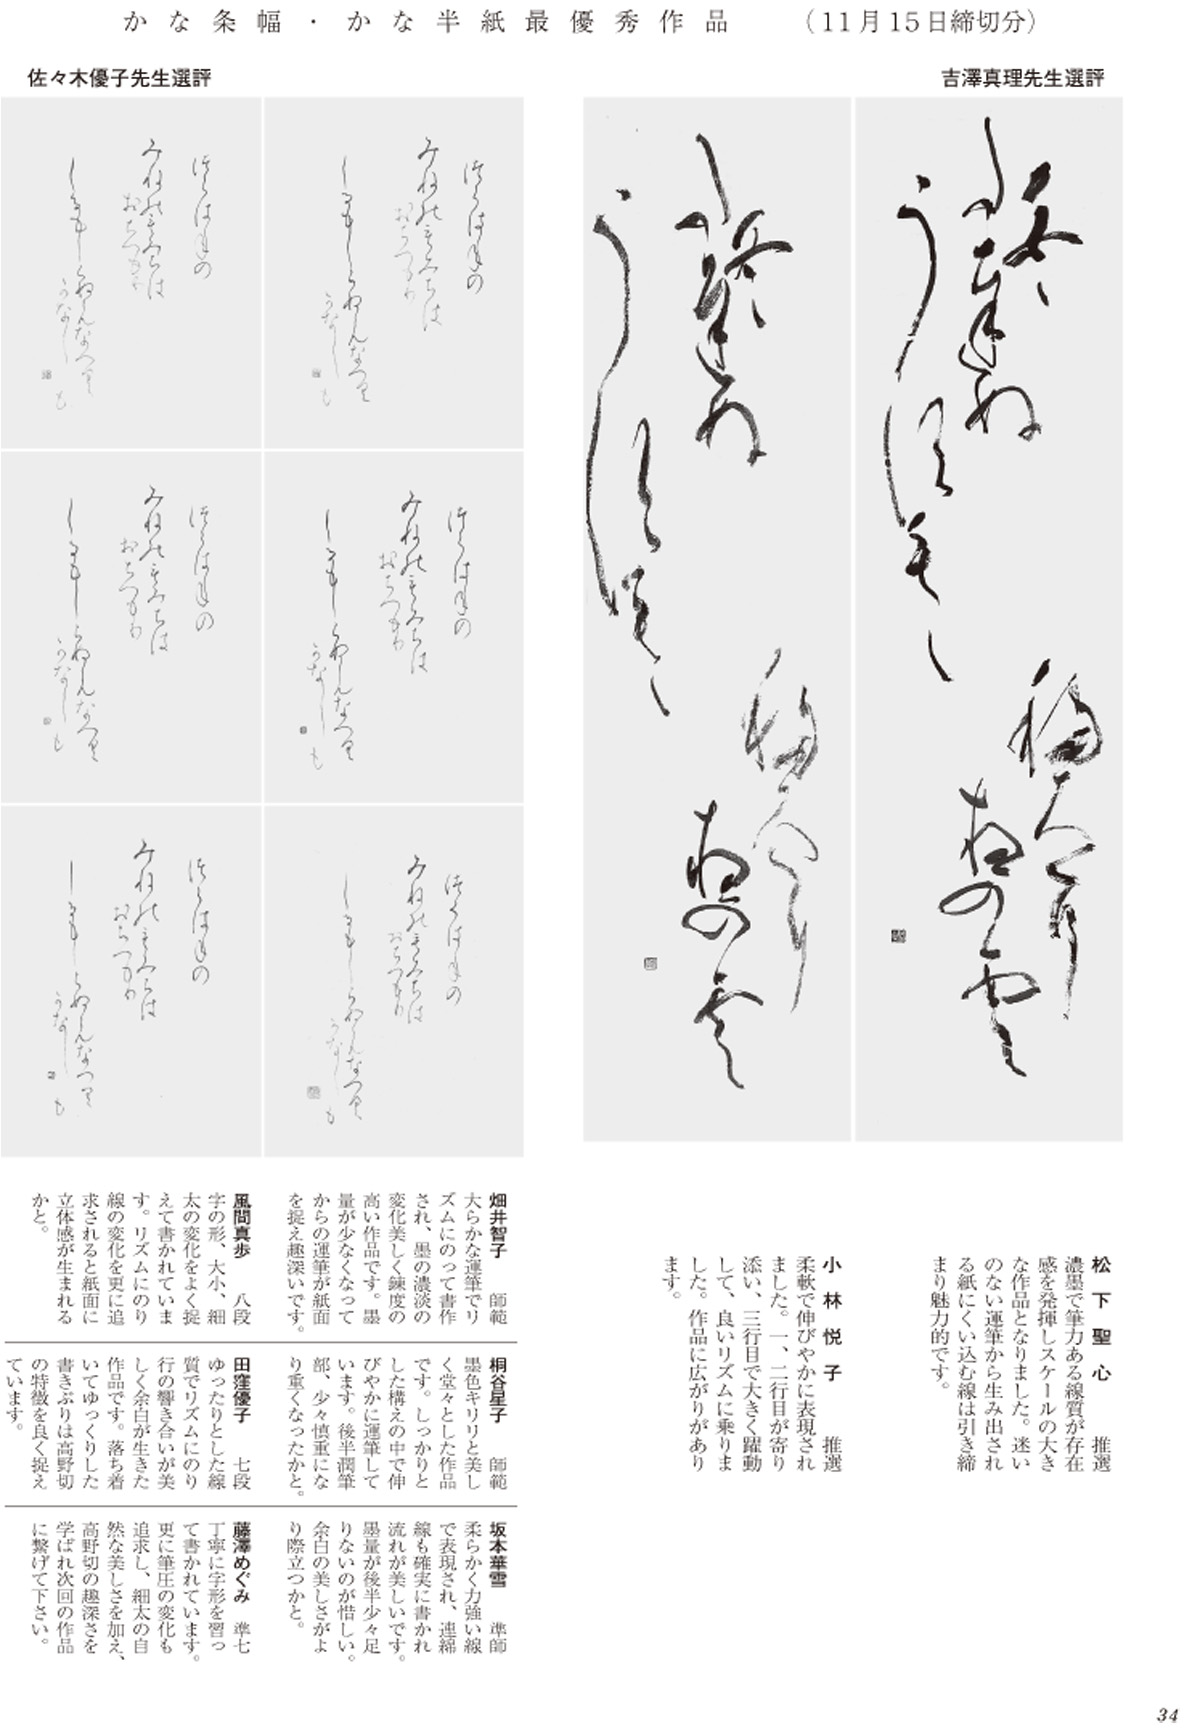 かな条幅・かな半紙最優秀作品　（11月15日締切分）
吉澤真理先生選評
佐々木優子先生選評
松下聖心　推選
濃墨で筆力ある線質が存在
感を発揮しスケールの大き
な作品となりました。迷い
のない運筆から生み出され
る紙にくい込む線は引き締
まり魅力的です。
小林悦子　推選
柔軟で伸びやかに表現され
ました。一、二行目が寄り
添い、三行目で大きく躍動
して、良いリズムに乗りま
した。作品に広がりがあり
ます。
畑井智子　師範
大らかな運筆でリ
ズムにのって書作
され、墨の濃淡の
変化美しく錬度の
高い作品です。墨
量が少なくなって
からの運筆が紙面
を捉え趣深いです。
風間真歩　八段
字の形、大小、細
太の変化をよく捉
えて書かれていま
す。リズムにのり
線の変化を更に追
求されると紙面に
立体感が生まれる
かと。
桐谷星子　師範
墨色キリリと美し
く堂々とした作品
です。しっかりと
した構えの中で伸
びやかに運筆して
います。後半潤筆
部、少々慎重にな
り重くなったかと。
田窪優子　七段
ゆったりとした線
質でリズムにのり
行の響き合いが美
しく余白が生きた
作品です。落ち着
いてゆっくりした
書きぶりは高野切
の特徴を良く捉え
ています。
坂本華雪　準師
柔らかく力強い線
で表現され、連綿
線も確実に書かれ
流れが美しいです。
墨量が後半少々足
りないのが惜しい。
余白の美しさがよ
り際立つかと。
藤澤めぐみ　準七
丁寧に字形を習っ
て書かれています。
更に筆圧の変化も
追求し、細太の自
然な美しさを加え、
高野切の趣深さを
学ばれ次回の作品
に繋げて下さい。
34